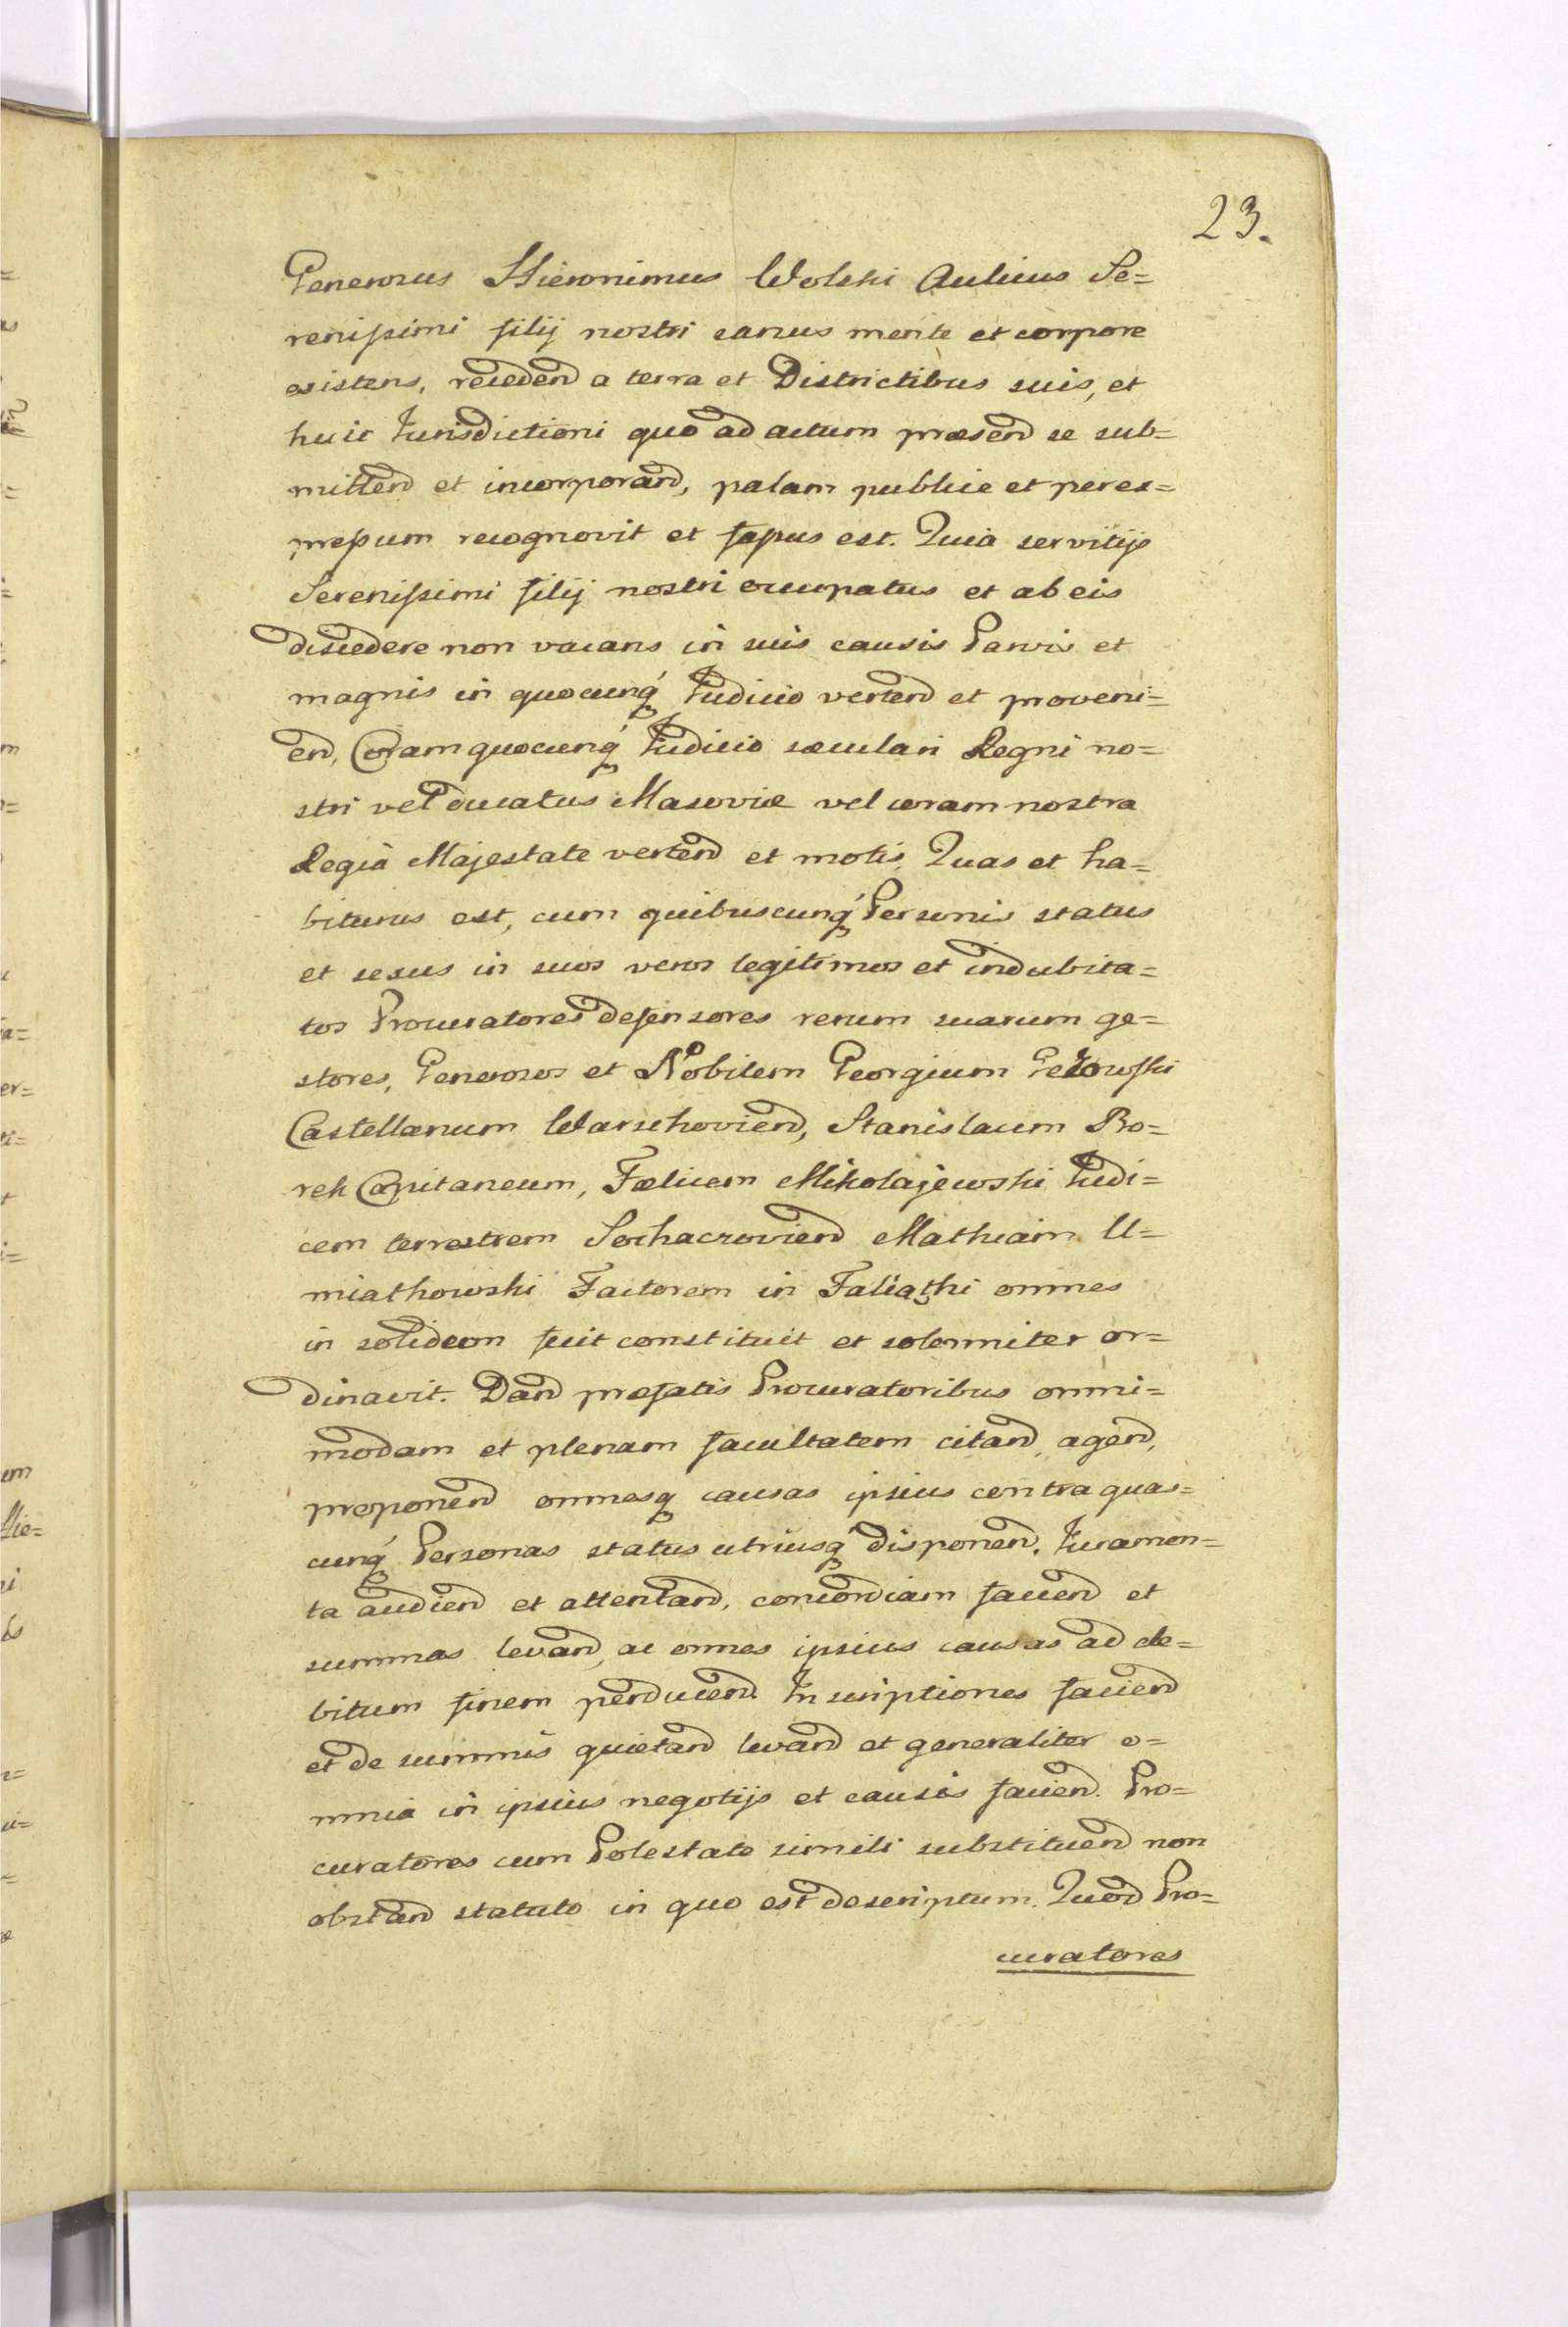 23.
Generosus Hieronimus Wolski Aulicus Se=
renissimi filij nostri sanus mente et corpore
existens, recedend a terra et Districtibus suis, et
huic Jurisdictioni quo ad actum præsend se sub=
mittend et incorporand, palam publice et perex=
pressum recognovit et fassus est. Quia servitijs
Serenissimi filij nostri occupatus et ab eis
discedere non vacans in suis causis Parvis et
magnis in quocunq́ Judicio vertend et proveni=
end, Coram quocunq́ Judicio sæculari Regni no=
stri vel ducatus Masoviæ vel coram nostra
Regià Majestate vertend et motis. Quas et ha=
biturus est, cum quibuscunq́ Personis status
et sexus in suos veros legitimos et indubita=
tos Procuratores defensores rerum suarum ge=
stores, Generosos et Nobilem Georgium
Castellanum Warschoviend, Stanislaum Bo=
rek Capitaneum, Fælicem Mikolajewski Judi=
cem terrestrem Sochaczoviend Mathiam U=
miathowski Factorem in omnes
in solidum fecit constituit et solenniter or=
dinavit. Dand præfatis Procuratoribus omni=
modam et plenam facultatem citand, agend,
proponend omnesq causas ipsius contra quas=
cunq́ Personas status utriusq́ disponend, Juramen=
ta audiend et attentand, concordiam faciend et
summas levand, ac omnes ipsius causas ad de=
bitum finem perducend Inscriptiones faciend
et de summis quietand levand et generaliter o=
mnia in ipsius negotijs et causis faciend. Pro=
curatores cum Potestate simili substituend non
obstand statuto in quo est descriptum. Quod Pro=
curatores